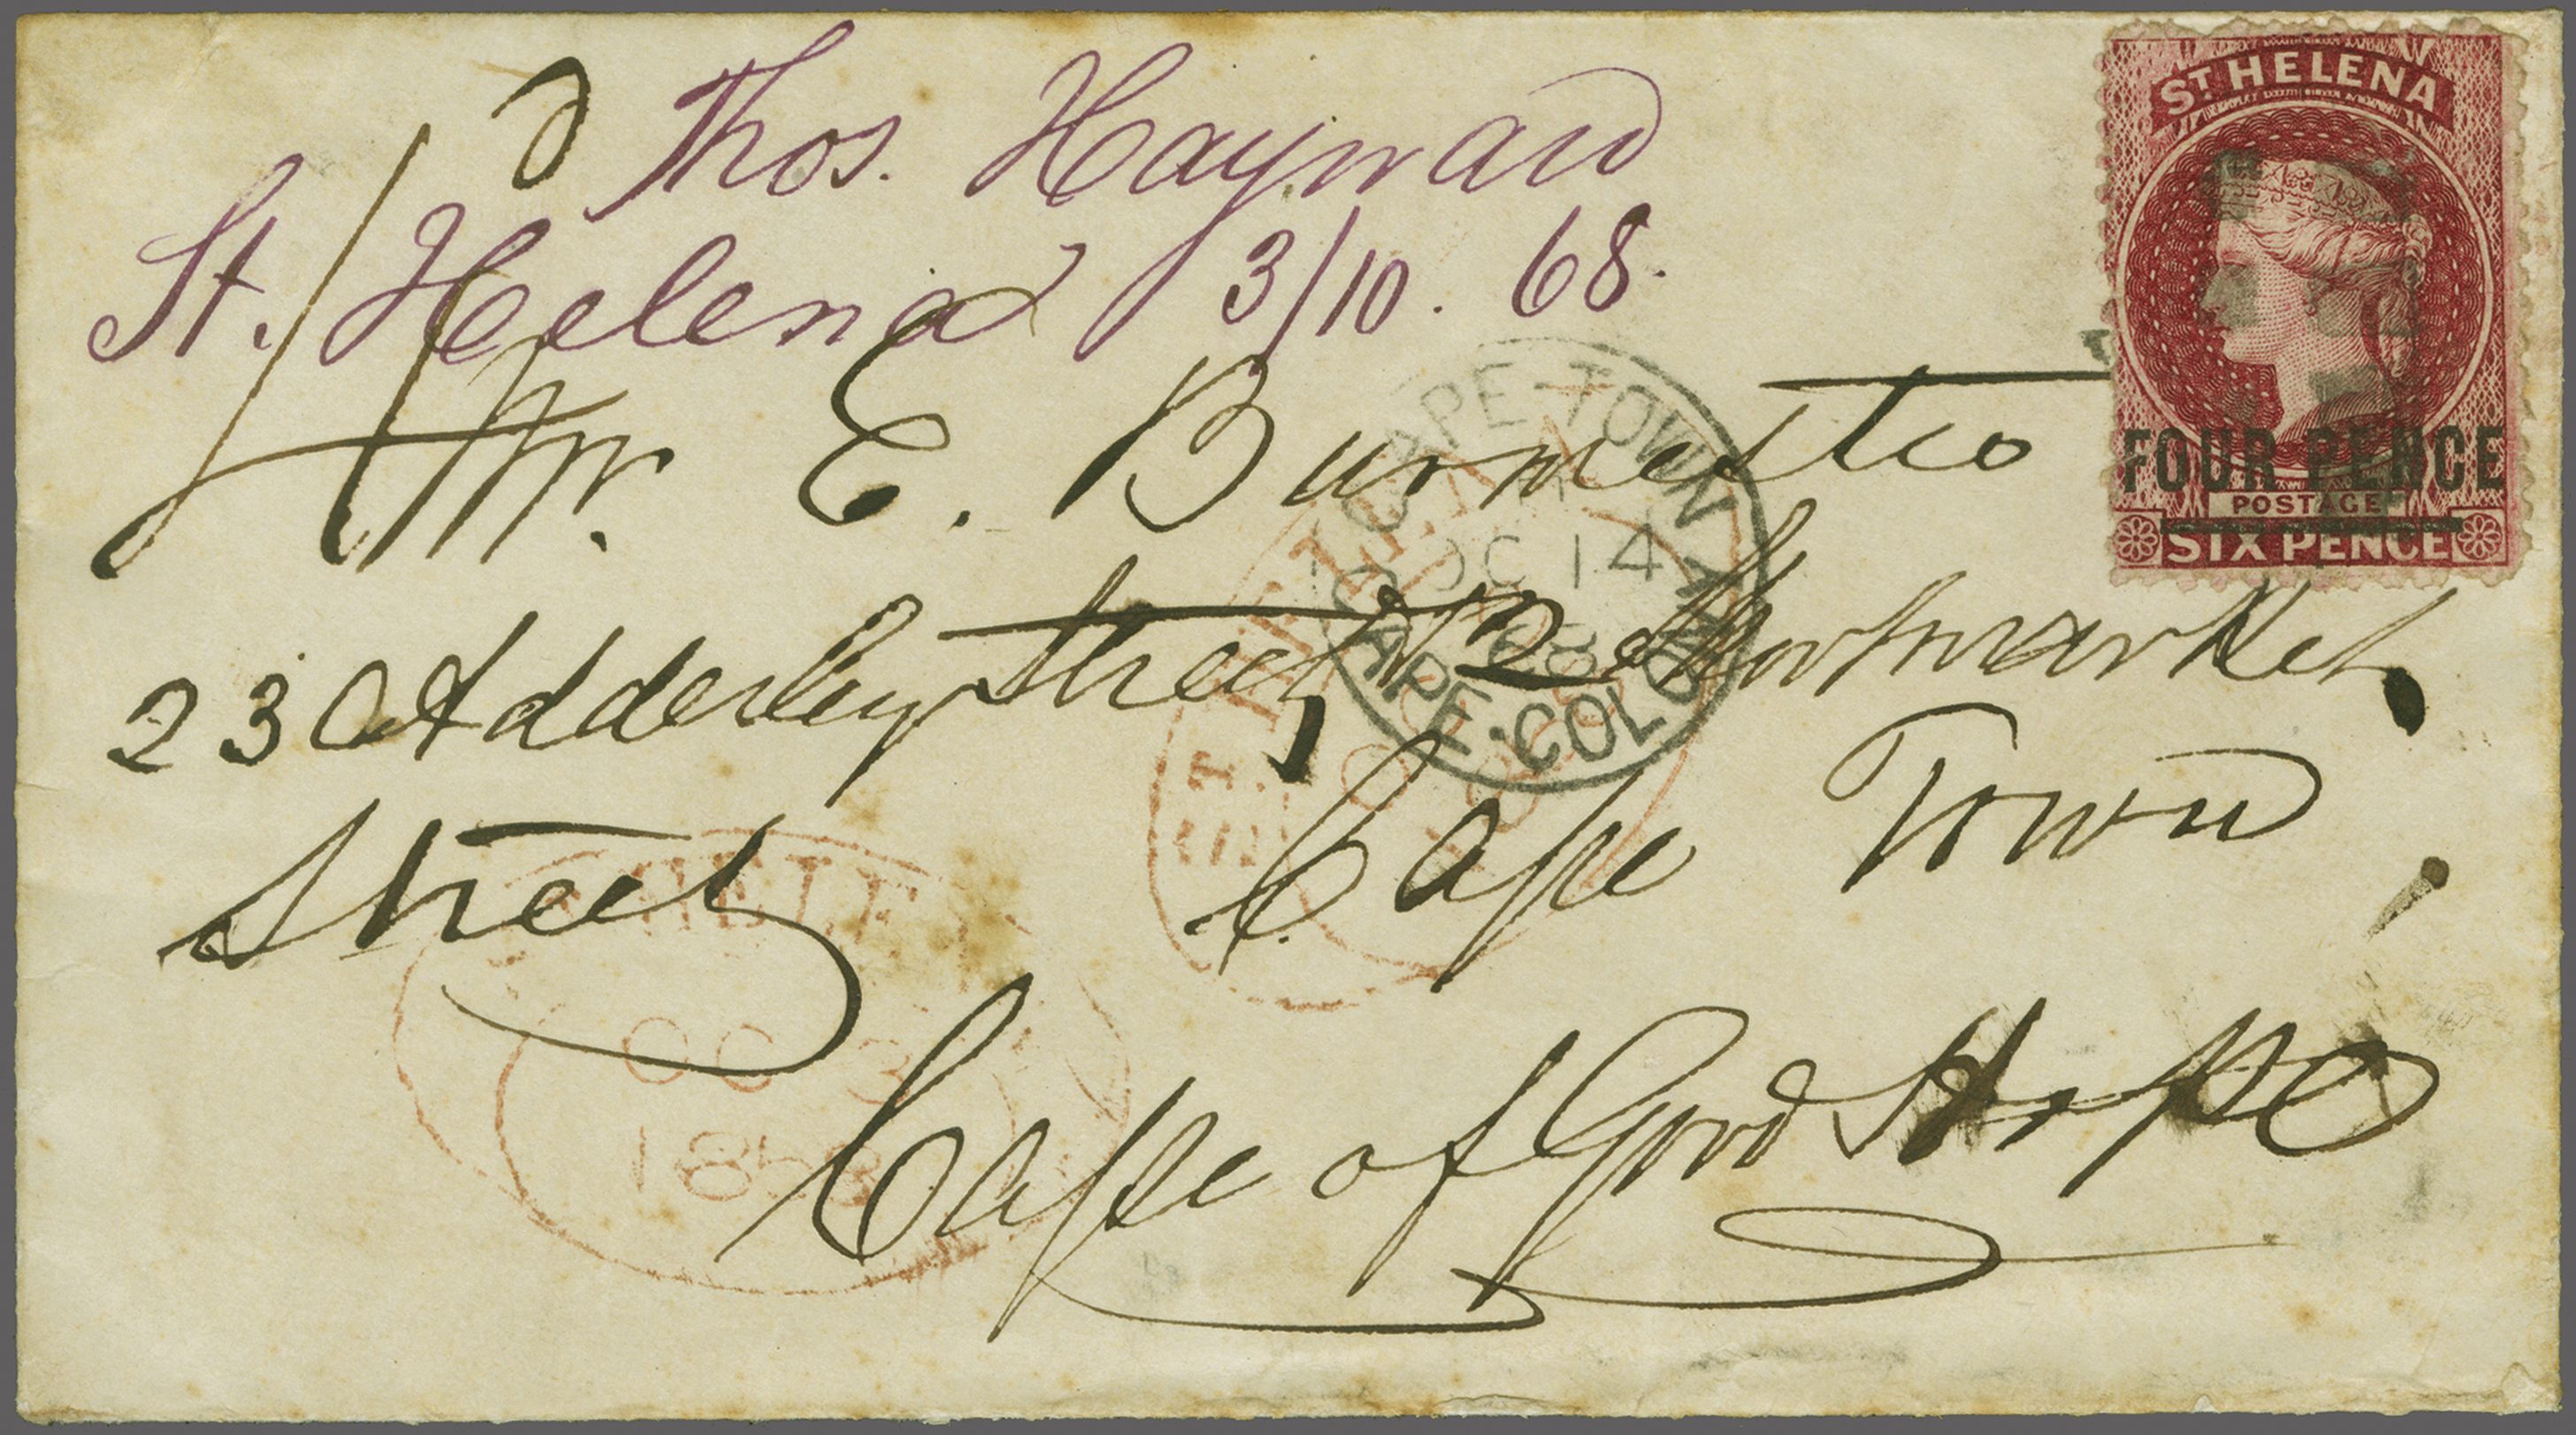 Thos. Hayward
St. Helena 3/10. 68.
ST HELENA
FOUR PENCE
POSTAGE
SIX PENCE
Mr. E. Burmester
CAPE-TOWN
OC 14
68
CAPE·COLONY
23 Adderley Street, 12 Shortmarket
Street Cape Town
HELE
OC 3
1868
Cape of Good Hope